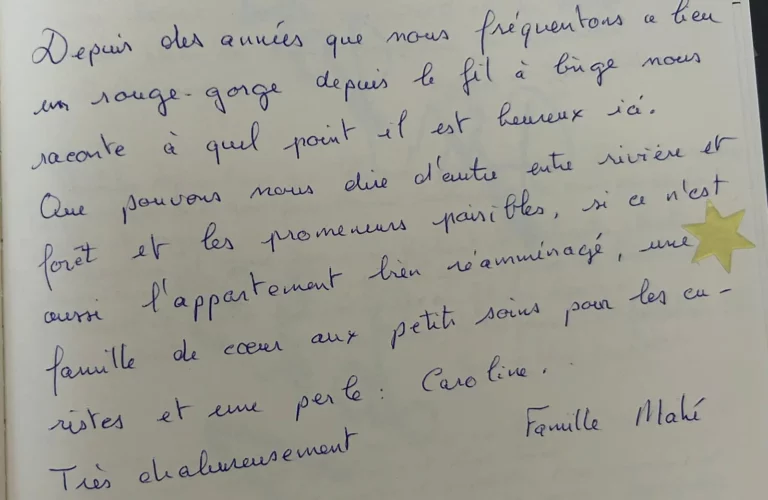 Depuis des années que nous fréquentons ce lieu
un rouge-gorge depuis le fil à linge nous
raconte à quel point il est heureux ici.
Que pouvons nous dire d'autre entre rivière et
forêt et les promeneurs paisibles, si ce n'est
aussi l'appartement bien réamménagé, une
famille de cœur aux petits soins pour les cu-
ristes et une perle : Caroline.
Famille Mahé
Très chaleureusement